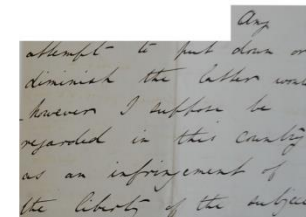 Any
attempt to put down or
diminish the latter woul
however I suppose be
regarded in this country
as an infringement of
the liberty of the subjec